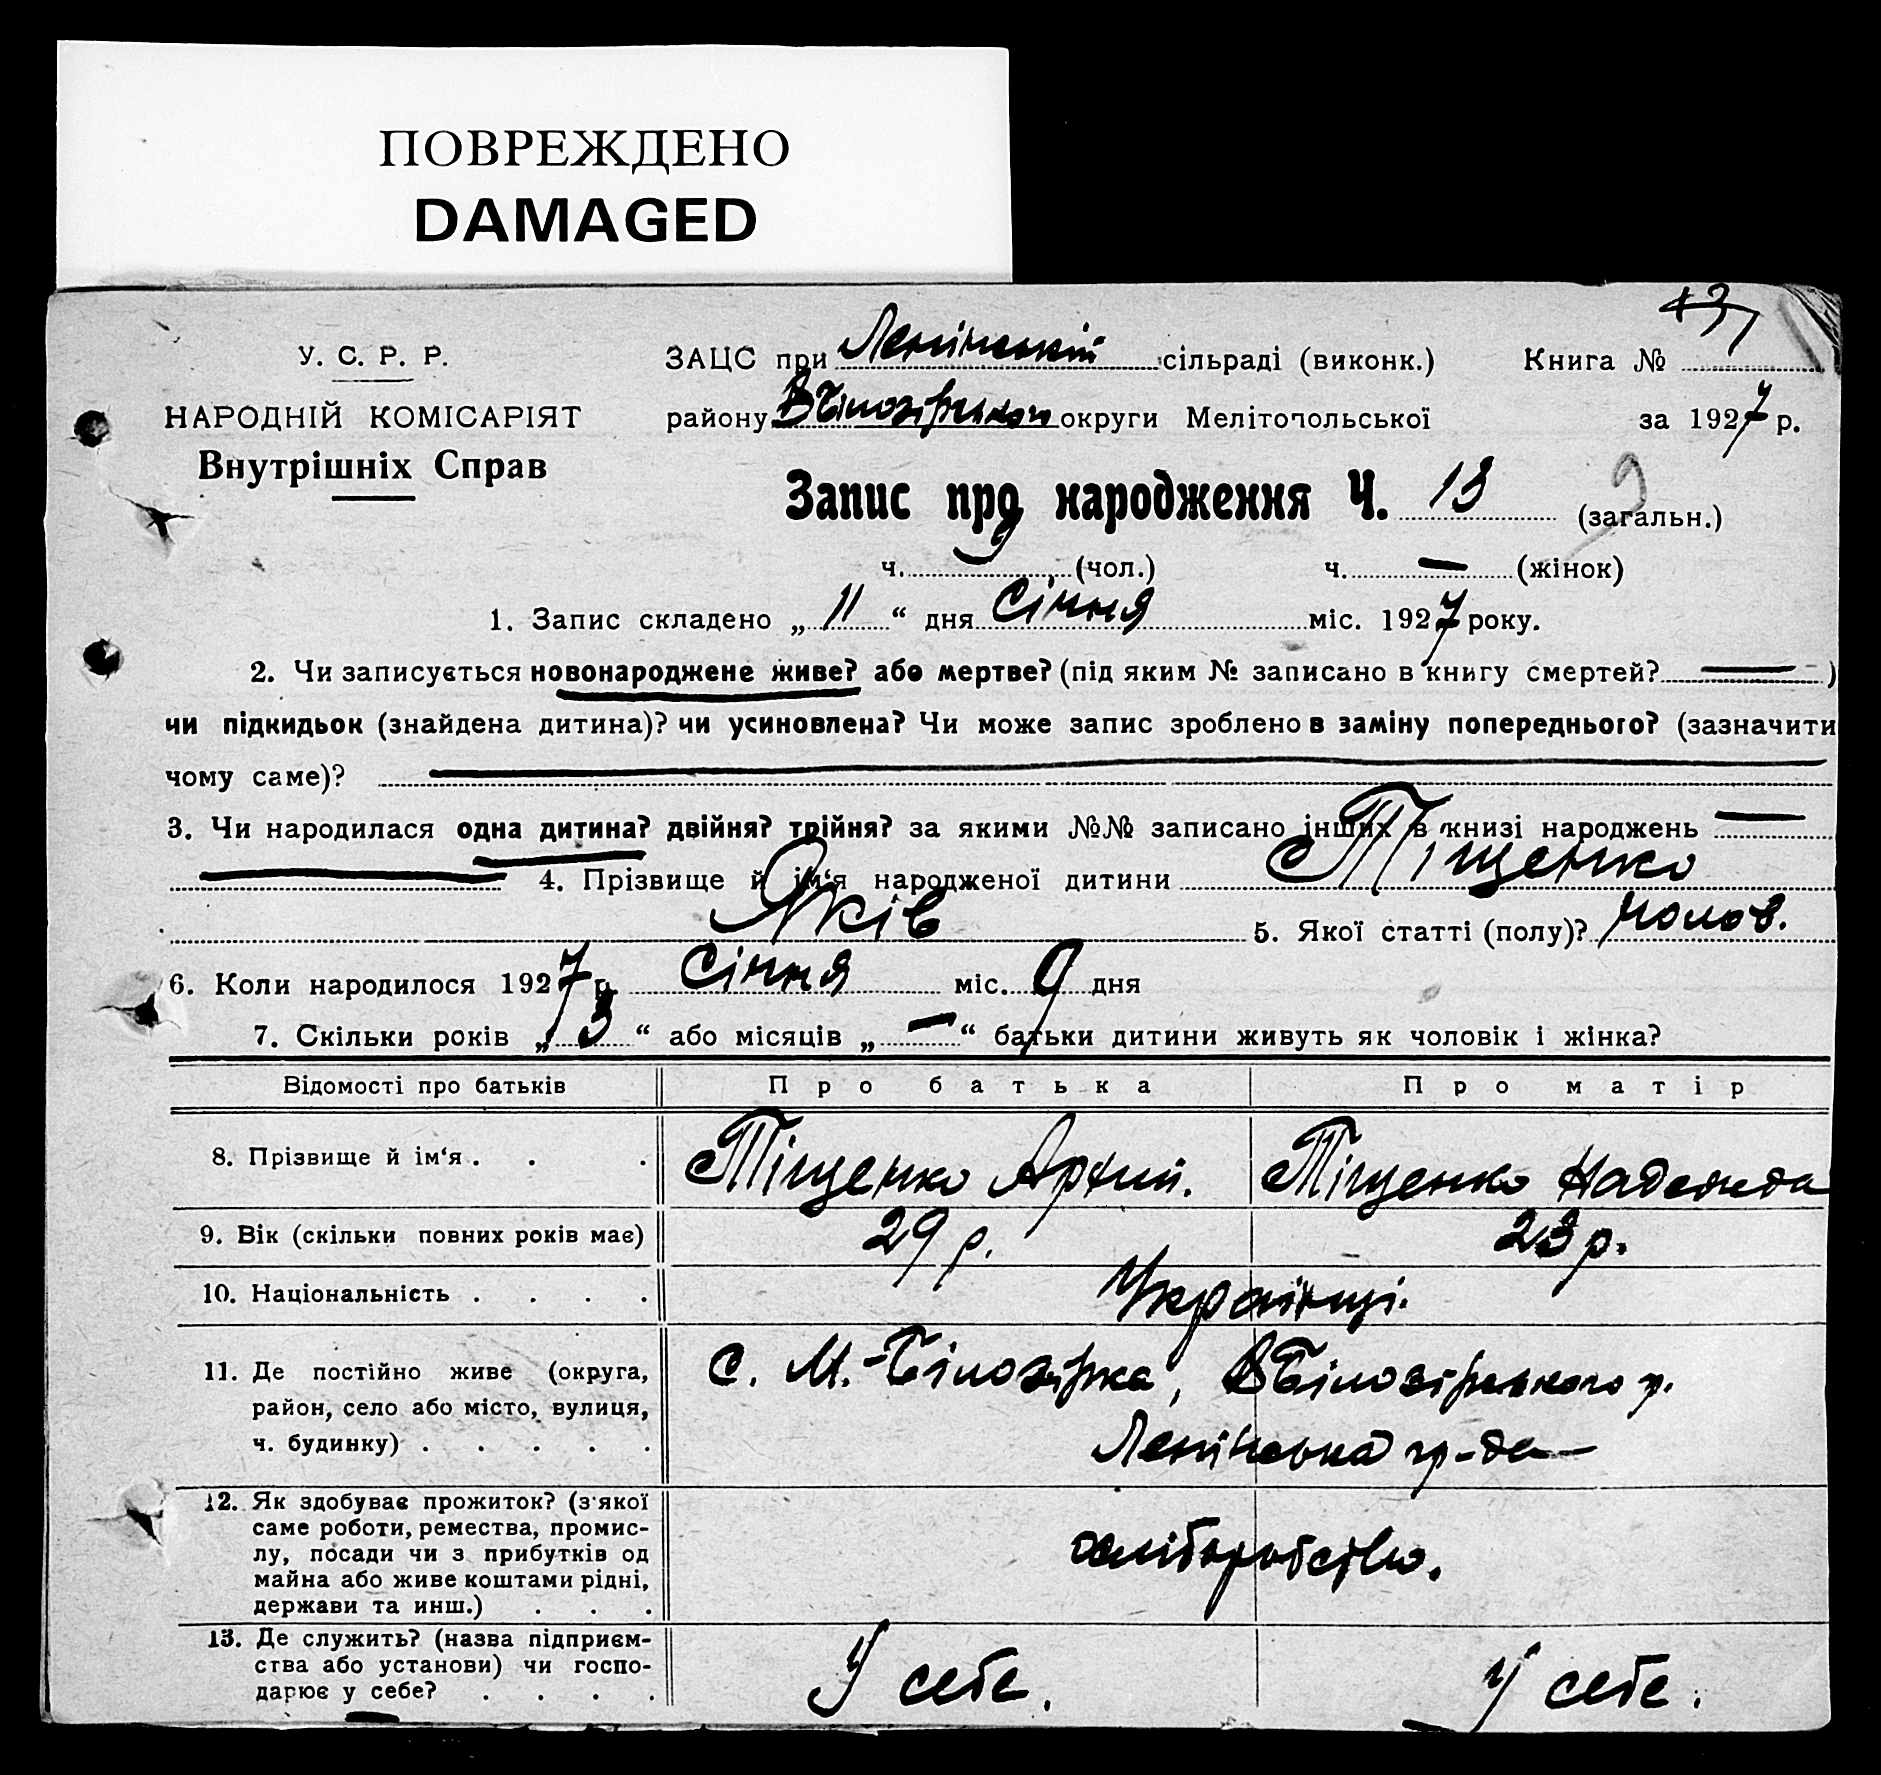 ПОВРЕЖДЕНО
DAMAGED
У. С. Р. Р.
НАРОДНІЙ КОМІСАРІЯТ
Внутрішніх Справ
ЗАЦС при Ленінській сільраді (виконк.) Книга №
району ВБілозірського округи Мелітопольської за 1927 р.
Запис про народження Ч. 13 (загальн.)
9
ч. 9 (чол.) ч. — (жінок)
1. Запис складено „ 11 “ дня Січня міс. 1927 року.
2. Чи записується новонароджене живе? або мертве? (під яким № записано в книгу смертей? — )
чи підкидьок (знайдена дитина)? чи усиновлена? Чи може запис зроблено в заміну попереднього? (зазначити
чому саме)? —
3. Чи народилася одна дитина? двійня? трійня? за якими №№ записано інших в книзі народжень —
— 4. Прізвище й ім‘я народженої дитини Тіщенко
Яків 5. Якої статті (полу)? чолов.
6. Коли народилося 1927 р. Січня міс. 9 дня
7. Скільки років „ 3 “ або місяців „ — “ батьки дитини живуть як чоловік і жінка?
Відомості про батьків Про батька Про матір
8. Прізвище й ім‘я . . . Тіщенко Архип. Тіщенко Надежда
9. Вік (скільки повних років має) 29 р. 23 р.
10. Національність . . . . Українці.
11. Де постійно живе (округа,
район, село або місто, вулиця,
ч. будинку) . . . . .
с. М.-Білозірка, ВБілозірського р.
Ленінська гр-да
12. Як здобуває прожиток? (з'якої
саме роботи, ремества, промис-
лу, посади чи з прибутків од
майна або живе коштами рідні,
держави та инш.) . . .
хліборобство.
13. Де служить? (назва підприєм-
ства або установи) чи госпо-
дарює у себе? . . . .
У себе. У себе.